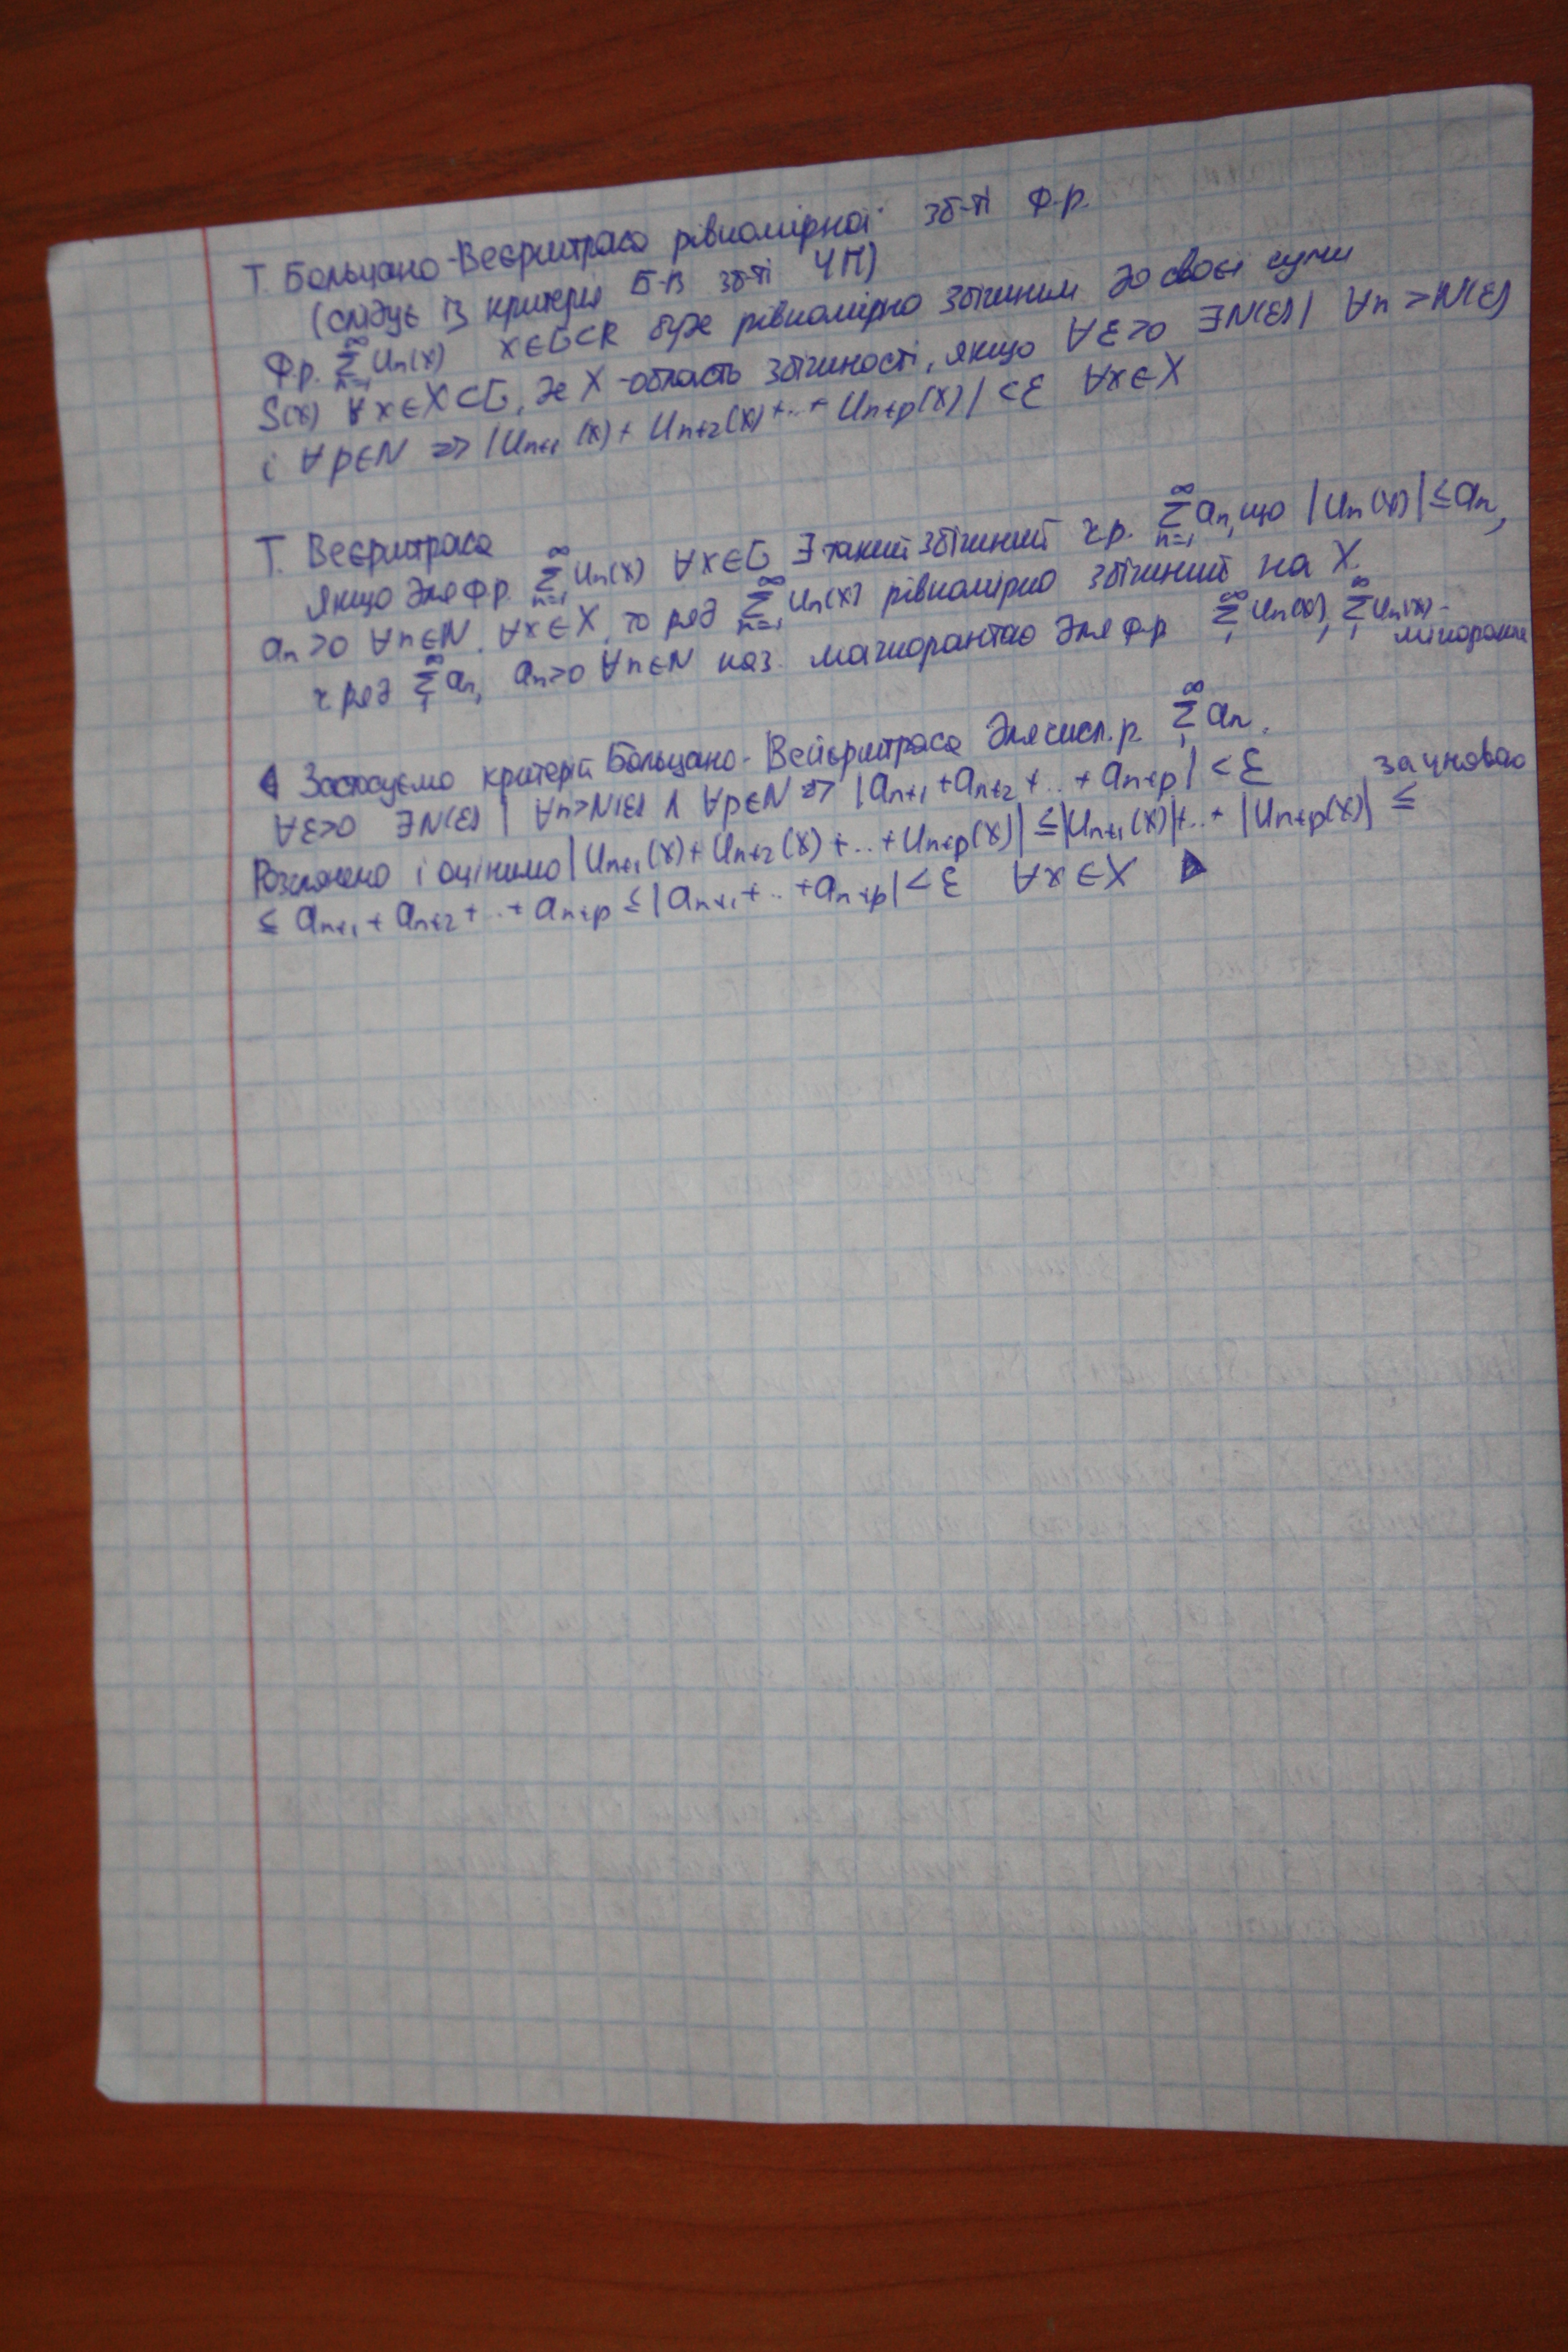 Т. Больцано-Веєрштраса рівномірної зб-ті ф.р.
(слідує із критерія Б-В зб-ті ЧП)
Ф.р. ∑_{n=1}^{∞} Un(x) x∈G⊂R буде рівномірно збіжним до своєї суми
S(x) ∀x∈X⊂G, де X-область збіжності, якщо ∀ε>0 ∃N(ε) | ∀n>N(ε)
і ∀p∈N => |Un+1(x)+Un+2(x)+..+Un+p(x)|<ε ∀x∈X
Т. Веєрштраса
Якщо для ф.р. ∑_{n=1}^{∞} Un(x) ∀x∈G ∃ такий збіжний ч.р. ∑_{n=1}^{∞} an, що |Un(x)|≤an,
an>0 ∀n∈N, ∀x∈X, то ряд ∑_{n=1}^{∞} Un(x) рівномірно збіжний на X.
ч ряд ∑_{1}^{∞} an, an>0 ∀n∈N наз. мажорантою для ф.р ∑_{1}^{∞} Un(x), ∑_{1}^{∞} Un(x)-
міноранта
◀ Застосуємо критерій Больцано-Вейєрштраса для числ.р. ∑_{1}^{∞} an.
∀ε>0 ∃N(ε) | ∀n>N(ε) ∧ ∀p∈N => |an+1+an+2+..+an+p|<ε
Розглянемо і оцінимо |Un+1(x)+Un+2(x)+..+Un+p(x)|≤|Un+1(x)|+..+|Un+p(x)| ≤ за умовою
≤ an+1+an+2+..+an+p≤|an+1+..+an+p|<ε ∀x∈X ▶